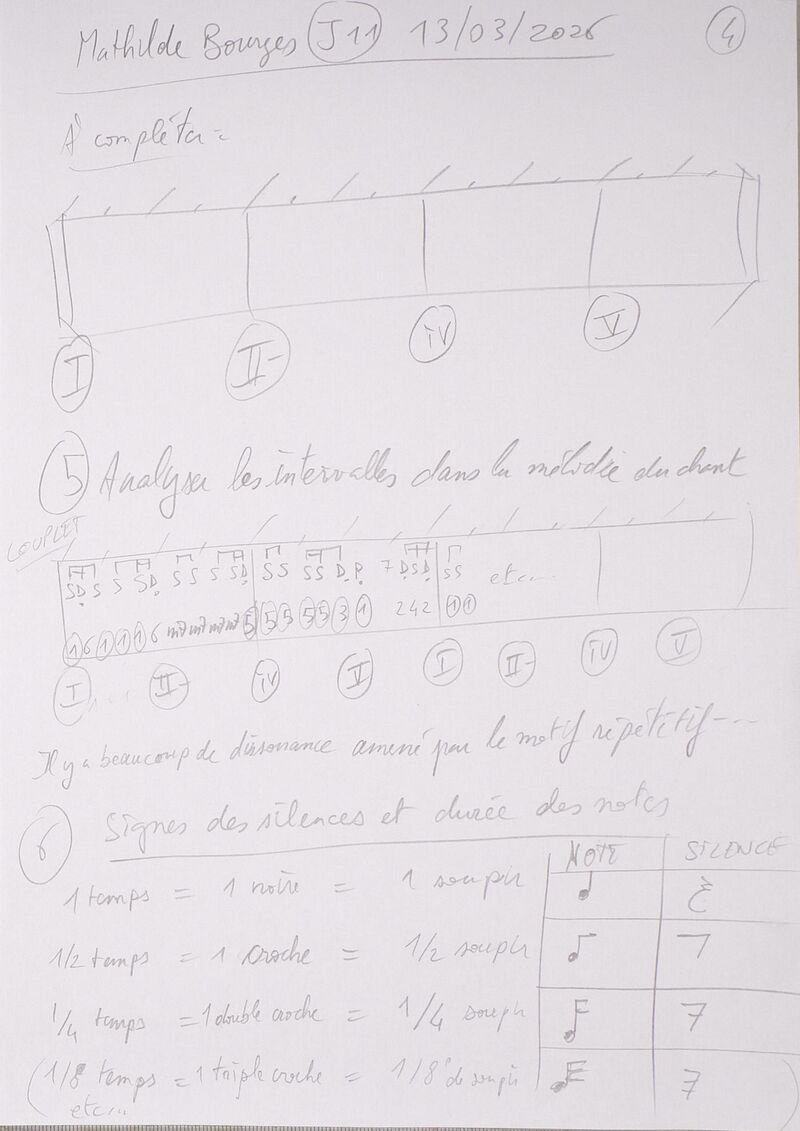 Mathilde Bourges J11 13/03/2026 4
À compléter =
I II- IV V
5 Analyser les intervalles dans la mélodie du chant
COUPLET
SD S S SD S S S SD S S S S D. P. 7 D S D S S etc...
1 6 1 1 1 6 m7 m7 m7 m7 5 5 5 5 5 3 1 2 4 2 1 1
I... II- IV V I II- IV V
Il y a beaucoup de dissonance amené par le motif répétitif...
6 Signes des silences et durée des notes
NOTE SILENCE
1 temps = 1 noire = 1 soupir
1/2 temps = 1 croche = 1/2 soupir
1/4 temps = 1 double croche = 1/4 soupir
(1/8 temps = 1 triple croche = 1/8 de soupir)
etc...